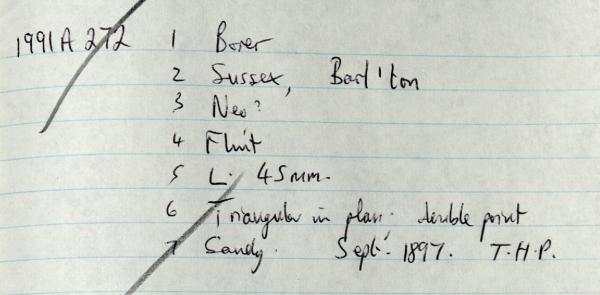 1991A 272 1 Borer
2 Sussex, Barl'ton
3 Neo?
4 Flint
5 L. 45mm.
6 Triangular in plan. double point
7 Sandy. Sept. 1897. T.H.P.